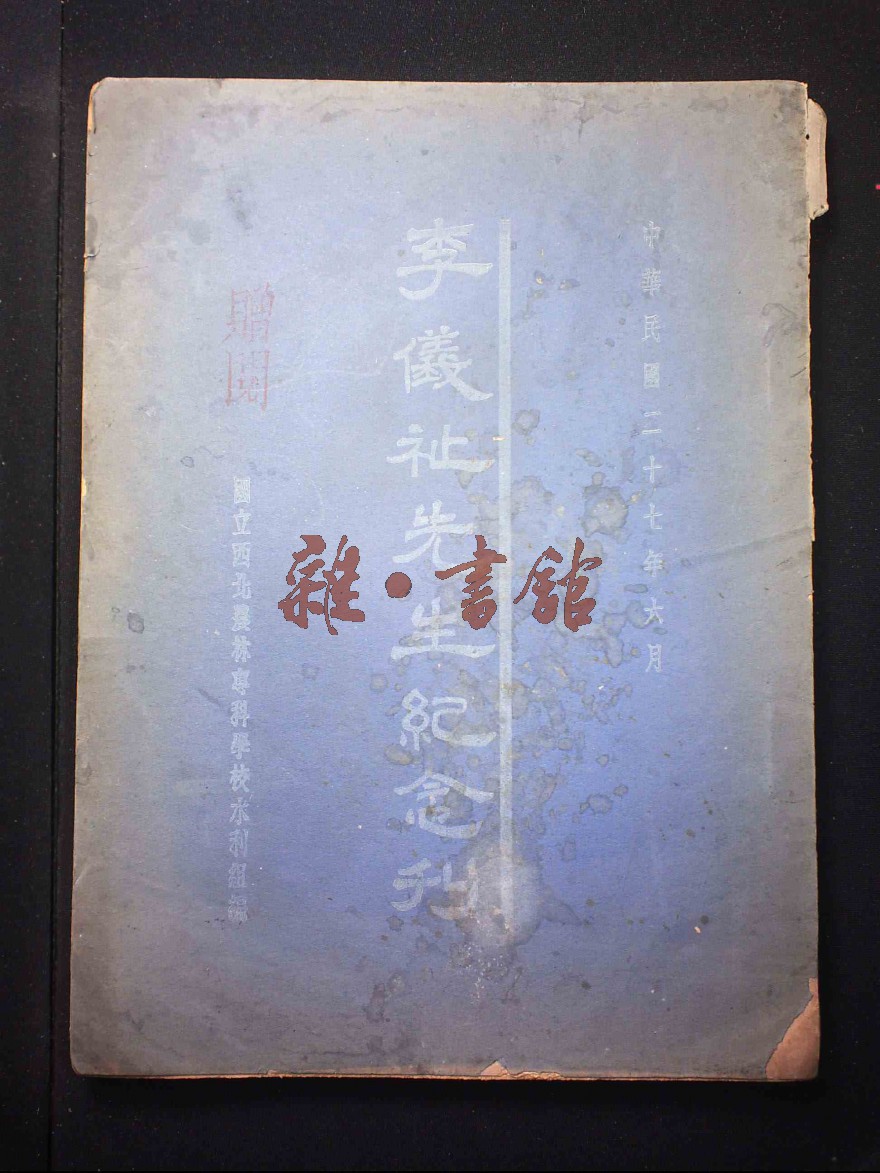 中華民國二十七年六月
李儀祉先生紀念刊
國立西北農林專科學校水利組編
贈閱
雜·書館